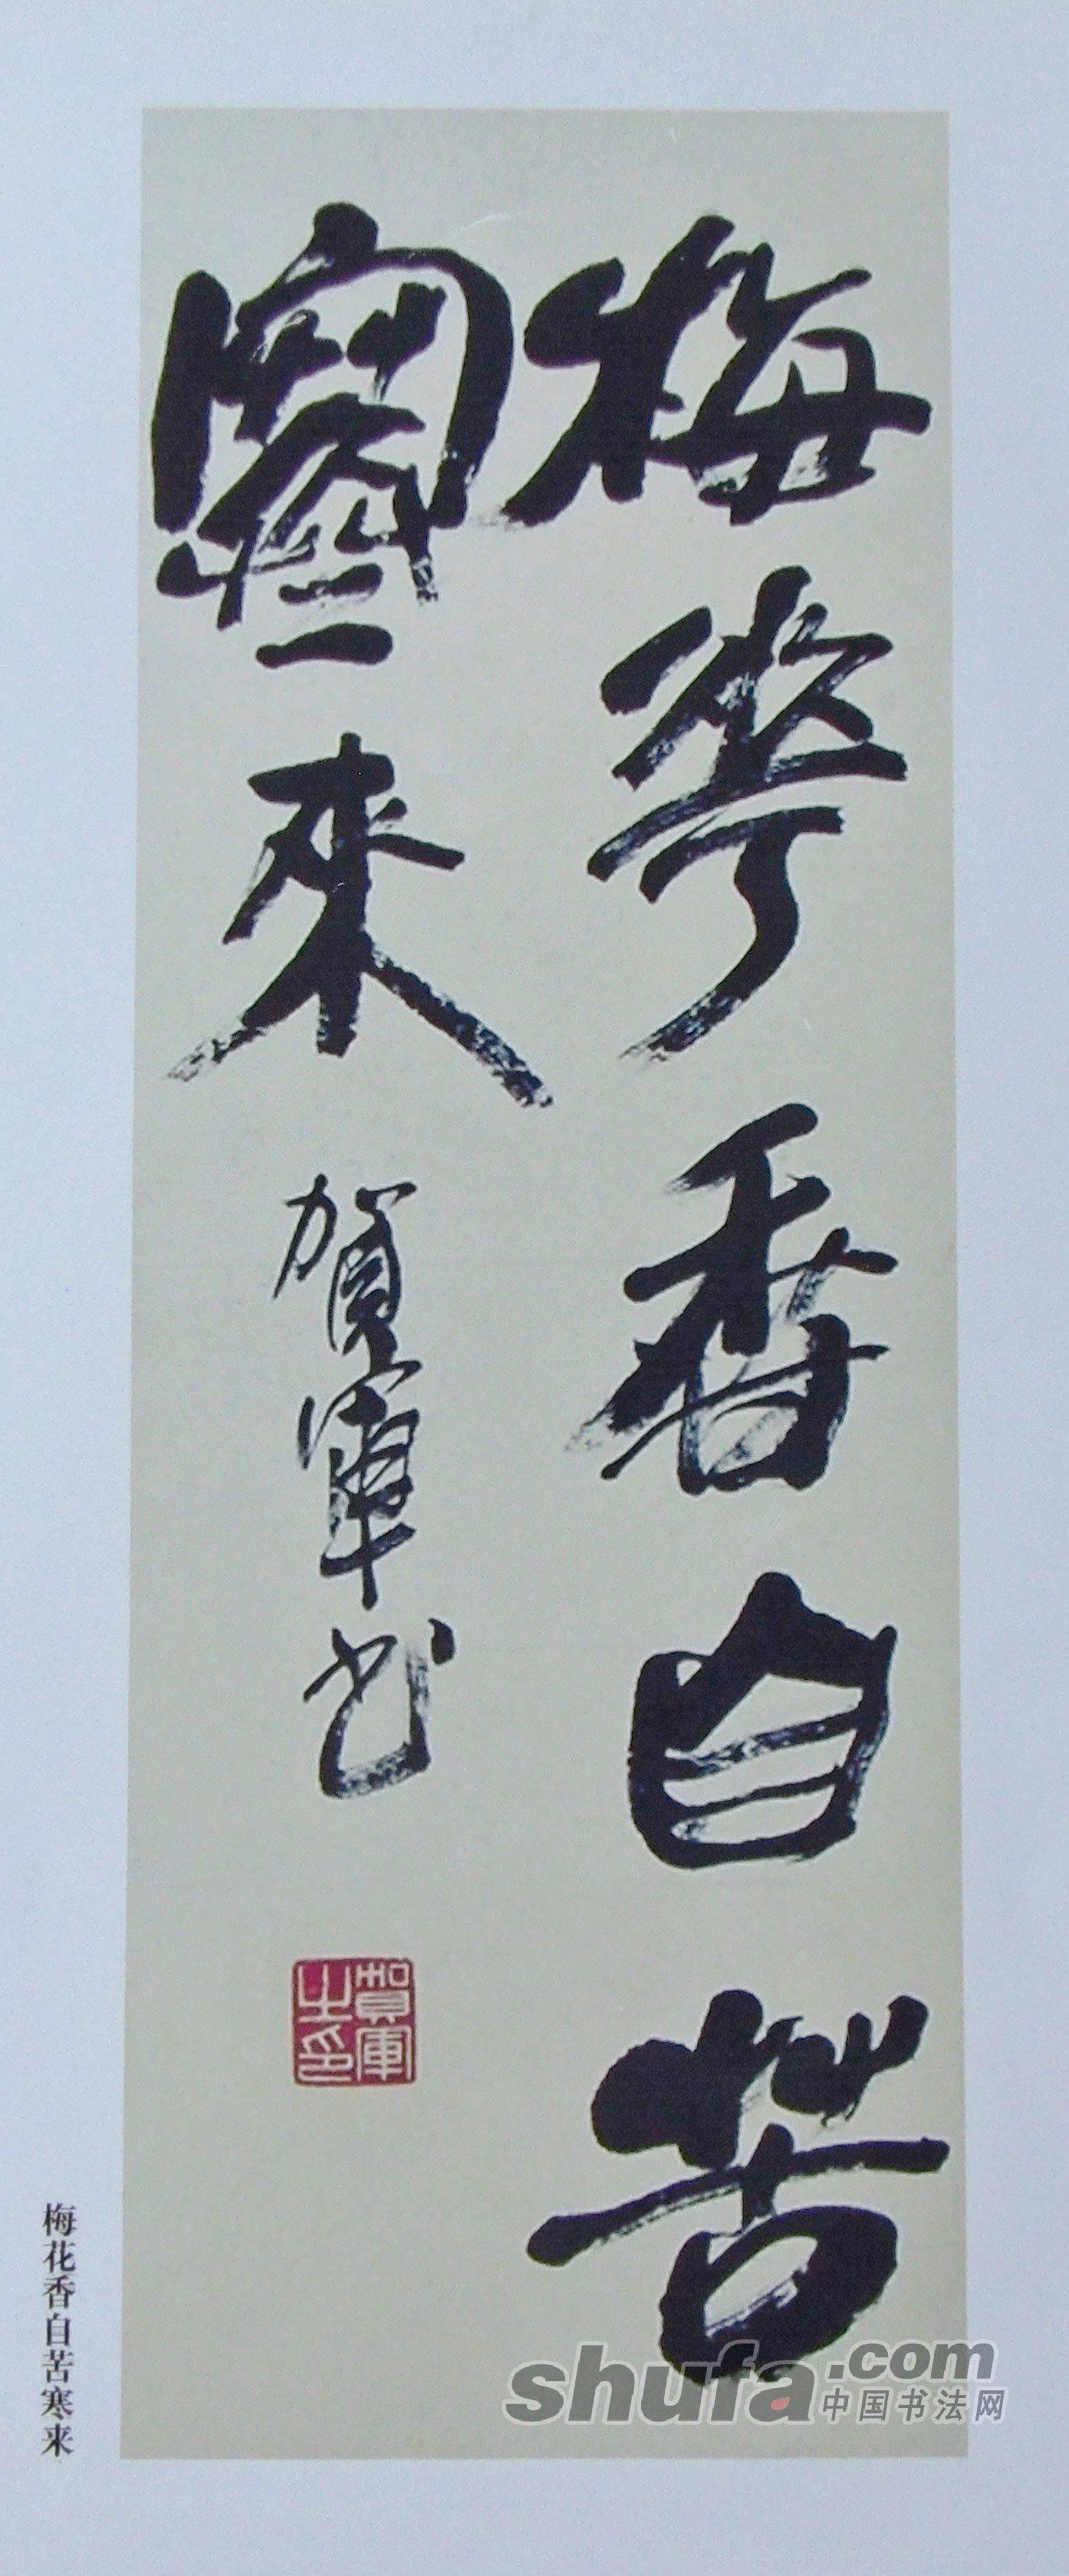 梅花香自苦
寒來
賀軍书
賀軍之印
梅花香自苦寒来
shufa.com
中国书法网